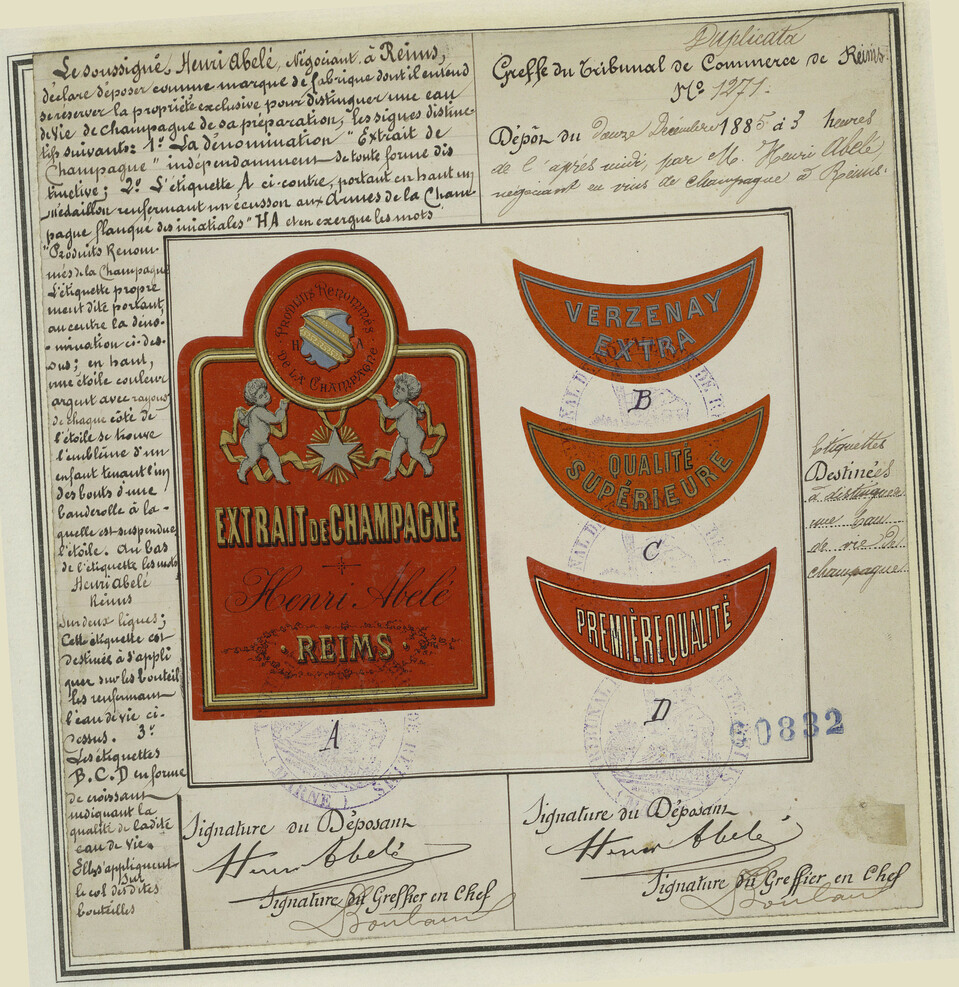 Le soussigné, Henri Abelé, Négociant à Reims,
déclare déposer comme marque de fabrique dont il entend
se réserver la propriété exclusive pour distinguer une eau
de vie de champagne de sa préparation, les signes distinc-
tifs suivants: 1º La dénomination "Extrait de
Champagne" indépendamment de toute forme dis
tinctive; 2º L'étiquette A ci-contre, portant en haut un
médaillon renfermant un écusson aux Armes de la Cham
pagne flanqué des iniatiales "HA et en exergue les mots
"Produits Renom-
més de la Champagne
L'étiquette propre
ment dite portant,
au centre la déno-
mination ci-des-
sus; en haut,
une étoile couleur
argent avec rayons
de chaque côté de
l'étoile se trouve
l'emblème d'un
enfant tenant l'un
des bouts d'une
banderolle à la-
quelle est suspendue
l'étoile. Au bas
de l'étiquette les mots
Henri Abelé
Reims
sur deux lignes;
Cette étiquette est
destinée à s'appli
quer sur les bouteil
les renfermant
l'eau de vie ci-
dessus. 3º
Les étiquettes
B.C.D en forme
de croissant
indiquant la
qualité de ladite
eau de vie.
Elles s'appliquent
sur
le col desdites
bouteilles
Duplicata
Greffe du Tribunal de Commerce de Reims
Nº 1271.
Dépôt du douze Décembre 1885 à 3 heures
de l'après midi, par M. Henri Abelé
négociant en vins de champagne à Reims.
PRODUITS RENOMMÉS
H A
DE LA CHAMPAGNE
EXTRAIT DE CHAMPAGNE
Henri Abelé
REIMS
A
VERZENAY
EXTRA
B
QUALITÉ
SUPÉRIEURE
C
PREMIÈRE QUALITÉ
D
Etiquettes
Destinées
à distinguer
une Eau
de vie De
champagne
60832
(MARNE)
Signature du Déposant
Henri Abelé
Signature du Greffier en Chef
Signature du Déposant
Henri Abelé
Signature du Greffier en Chef